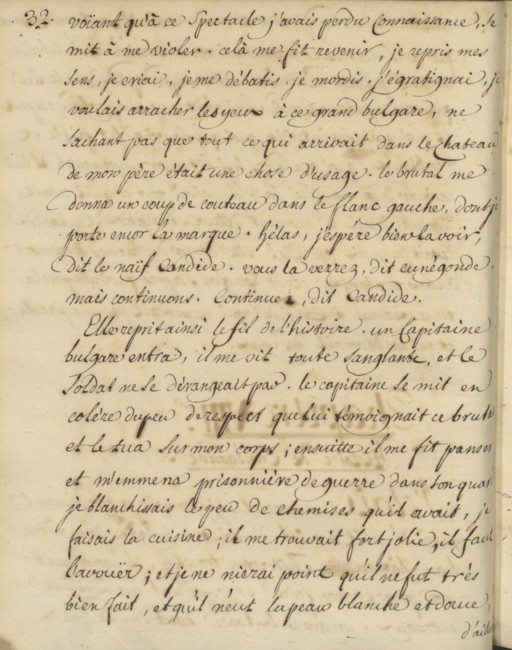 32.
voïant qu'à ce Spectacle j'avais perdu Connaissance, Se
mit à me violer. celà me fit revenir, je repris mes
sens, je criai, je me débatis, je mordis, j'égratignai, je
voulais arracher les yeux à ce grand bulgare, ne
sachant pas que tout ce qui arrivait dans le chateau
de mon père était une chose d'usage. le brutal me
donna un coup de couteau dans le flanc gauche, dont je
porte encor la marque. hélas, j'espère bien la voir,
dit le naïf Candide. vous la verrez, dit cunégonde.
mais continuons. Continuez, dit Candide.
Elle reprit ainsi le fil de l'histoire. un Capitaine
bulgare entra, il me vit toute sanglante, et le
Soldat ne se dérangeait pas. le capitaine se mit en
colère du peu de respect que lui témoignait ce brutal
et le tua sur mon corps; ensuitte il me fit panser
et m'emmena prisonnière de guerre dans son quar
je blanchissais le peu de chemises qu'il avait, je
faisais la cuisine; il me trouvait fort jolie, il faut
l'avouër; et je ne nierai point qu'il ne fut très
bien fait, et qu'il n'eut la peau blanche et douce,
d'ail